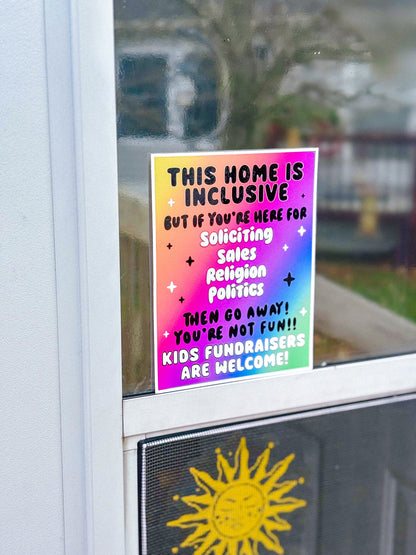 THIS HOME IS
INCLUSIVE
BUT IF YOU'RE HERE FOR
Soliciting
Sales
Religion
Politics
THEN GO AWAY!
YOU'RE NOT FUN!!
KIDS FUNDRAISERS
ARE WELCOME!